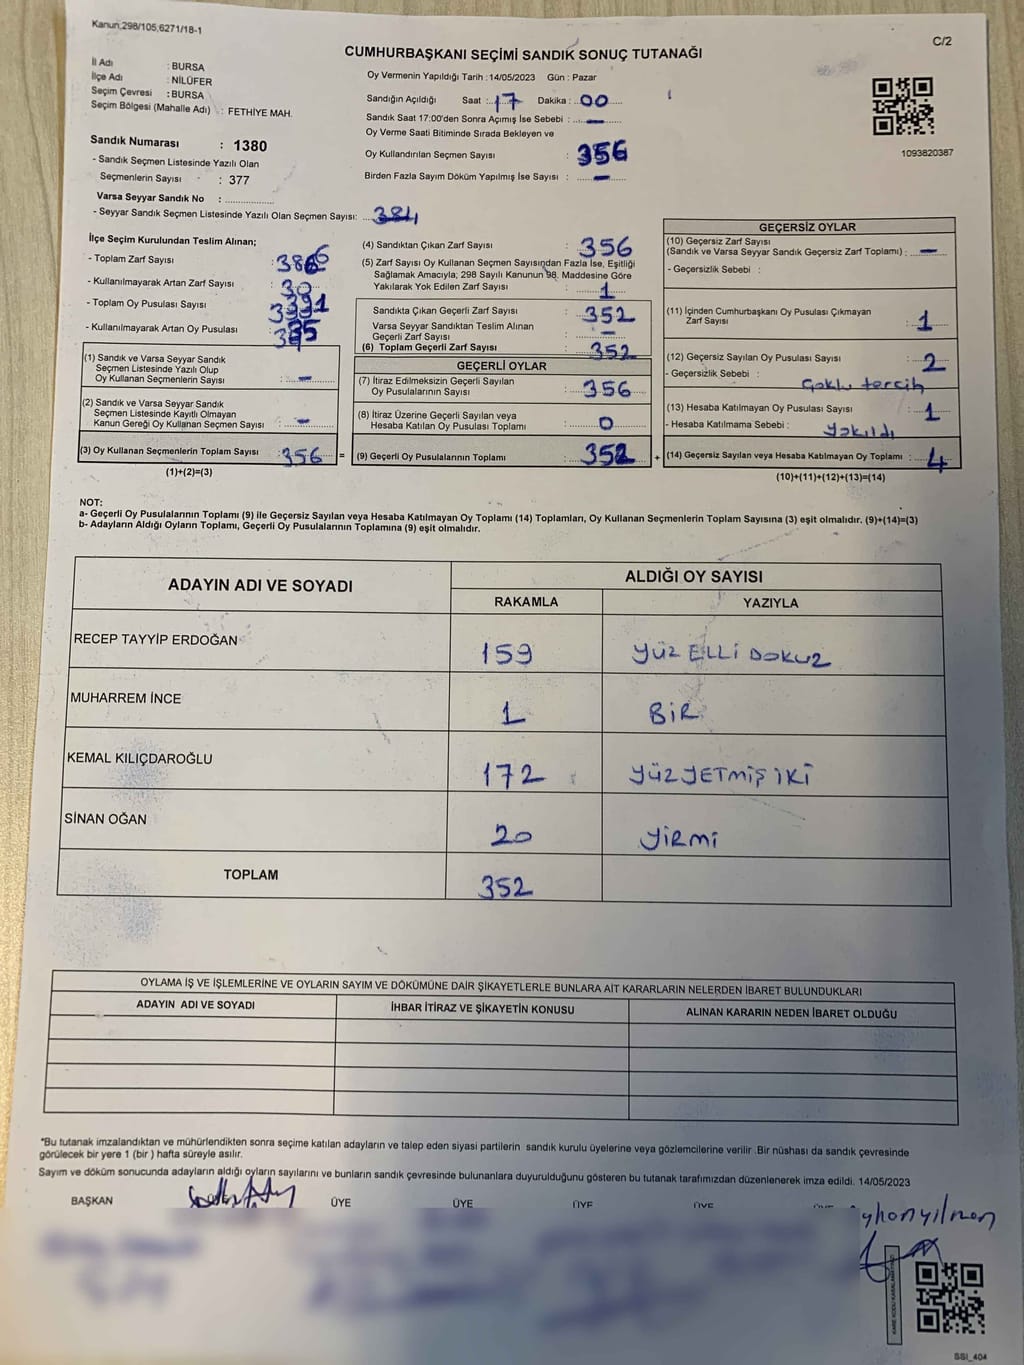 Kanun;298/105,6271/18-1
C/2
CUMHURBAŞKANI SEÇİMİ SANDIK SONUÇ TUTANAĞI
İl Adı : BURSA
İlçe Adı : NİLÜFER
Seçim Çevresi : BURSA
Seçim Bölgesi (Mahalle Adı) : FETHİYE MAH.
Oy Vermenin Yapıldığı Tarih : 14/05/2023 Gün : Pazar
Sandığın Açıldığı Saat : 17 Dakika : 00
Sandık Saat 17:00'den Sonra Açımış İse Sebebi : —
Oy Verme Saati Bitiminde Sırada Bekleyen ve
Oy Kullandırılan Seçmen Sayısı : 356
Birden Fazla Sayım Döküm Yapılmış İse Sayısı : —
1093820387
Sandık Numarası : 1380
- Sandık Seçmen Listesinde Yazılı Olan
Seçmenlerin Sayısı : 377
Varsa Seyyar Sandık No :
- Seyyar Sandık Seçmen Listesinde Yazılı Olan Seçmen Sayısı:
İlçe Seçim Kurulundan Teslim Alınan;
- Toplam Zarf Sayısı :
- Kullanılmayarak Artan Zarf Sayısı : 30
- Toplam Oy Pusulası Sayısı
- Kullanılmayarak Artan Oy Pusulası
(1) Sandık ve Varsa Seyyar Sandık
Seçmen Listesinde Yazılı Olup
Oy Kullanan Seçmenlerin Sayısı : —
(2) Sandık ve Varsa Seyyar Sandık
Seçmen Listesinde Kayıtlı Olmayan
Kanun Gereği Oy Kullanan Seçmen Sayısı : —
(3) Oy Kullanan Seçmenlerin Toplam Sayısı : 356 =
(1)+(2)=(3)
(4) Sandıktan Çıkan Zarf Sayısı : 356
(5) Zarf Sayısı Oy Kullanan Seçmen Sayısından Fazla İse, Eşitliği
Sağlamak Amacıyla; 298 Sayılı Kanunun 98. Maddesine Göre
Yakılarak Yok Edilen Zarf Sayısı : 1
Sandıkta Çıkan Geçerli Zarf Sayısı : 352
Varsa Seyyar Sandıktan Teslim Alınan
Geçerli Zarf Sayısı : —
(6) Toplam Geçerli Zarf Sayısı : 352
GEÇERLİ OYLAR
(7) İtiraz Edilmeksizin Geçerli Sayılan
Oy Pusulalarının Sayısı : 356
(8) İtiraz Üzerine Geçerli Sayılan veya
Hesaba Katılan Oy Pusulası Toplamı : 0
(9) Geçerli Oy Pusulalarının Toplamı : 352 +
GEÇERSİZ OYLAR
(10) Geçersiz Zarf Sayısı
(Sandık ve Varsa Seyyar Sandık Geçersiz Zarf Toplamı) : —
- Geçersizlik Sebebi :
(11) İçinden Cumhurbaşkanı Oy Pusulası Çıkmayan
Zarf Sayısı : 1
(12) Geçersiz Sayılan Oy Pusulası Sayısı : 2
- Geçersizlik Sebebi : Çoklu tercih
(13) Hesaba Katılmayan Oy Pusulası Sayısı : 1
- Hesaba Katılmama Sebebi : Yakıldı
(14) Geçersiz Sayılan veya Hesaba Katılmayan Oy Toplamı : 4
(10)+(11)+(12)+(13)=(14)
NOT:
a- Geçerli Oy Pusulalarının Toplamı (9) ile Geçersiz Sayılan veya Hesaba Katılmayan Oy Toplamı (14) Toplamları, Oy Kullanan Seçmenlerin Toplam Sayısına (3) eşit olmalıdır. (9)+(14)=(3)
b- Adayların Aldığı Oyların Toplamı, Geçerli Oy Pusulalarının Toplamına (9) eşit olmalıdır.
ADAYIN ADI VE SOYADI
ALDIĞI OY SAYISI
RAKAMLA YAZIYLA
RECEP TAYYİP ERDOĞAN 159 YÜZ ELLİ DOKUZ
MUHARREM İNCE 1 BİR
KEMAL KILIÇDAROĞLU 172 YÜZYETMİŞ İKİ
SİNAN OĞAN 20 YİRMİ
TOPLAM 352
OYLAMA İŞ VE İŞLEMLERİNE VE OYLARIN SAYIM VE DÖKÜMÜNE DAİR ŞİKAYETLERLE BUNLARA AİT KARARLARIN NELERDEN İBARET BULUNDUKLARI
ADAYIN ADI VE SOYADI İHBAR İTİRAZ VE ŞİKAYETİN KONUSU ALINAN KARARIN NEDEN İBARET OLDUĞU
*Bu tutanak imzalandıktan ve mühürlendikten sonra seçime katılan adayların ve talep eden siyasi partilerin sandık kurulu üyelerine veya gözlemcilerine verilir .Bir nüshası da sandık çevresinde
görülecek bir yere 1 (bir ) hafta süreyle asılır.
Sayım ve döküm sonucunda adayların aldığı oyların sayılarını ve bunların sandık çevresinde bulunanlara duyurulduğunu gösteren bu tutanak tarafımızdan düzenlenerek imza edildi. 14/05/2023
BAŞKAN ÜYE ÜYE ÜYE ÜYE
KARE KODU KARALAMAYINIZ!
SSI_404